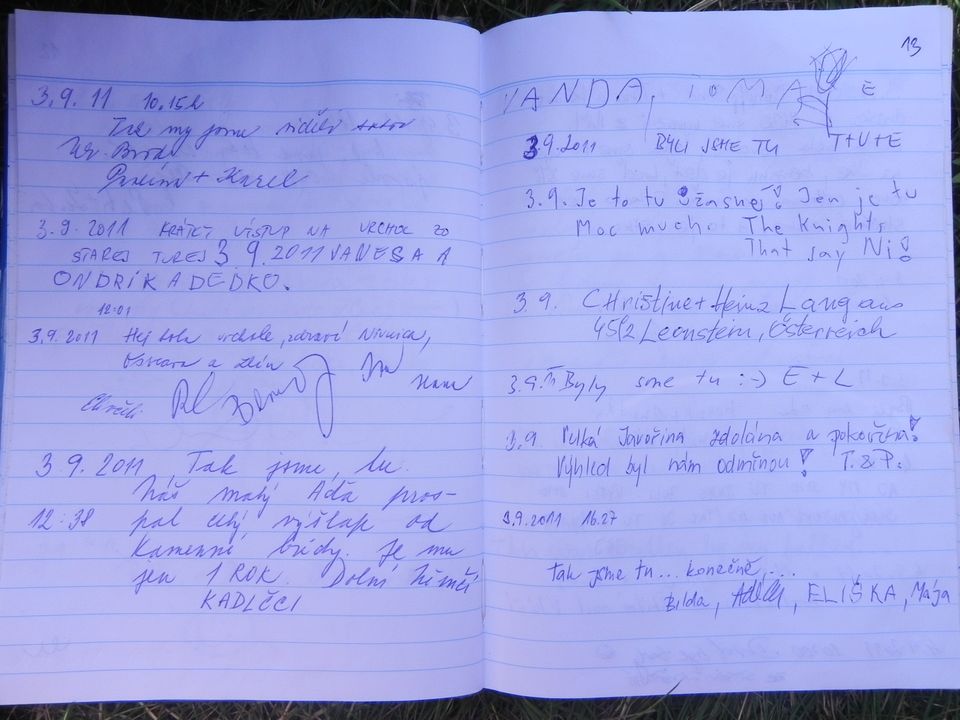 3.9.11 10.15h
Tak my jsme viděli
Uh. Brod
+ Karel
3.9.2011 KRÁTKY VÝSTUP NA VRCHOL ZO
STAREJ TUREJ 3 9.2011 VANESA A
ONDRÍK A DEDKO.
12:01
3.9.2011 vrchole, zdraví Nivnice,
a Zlín
Hana
3.9.2011 Tak jsme tu.
Náš malý Áďa pros-
12:38 pal celý výšlap od
Kamenné búdy. Je mu
jen 1 ROK. Dolní Němčí
KADLČCI
13
VANDA, TOMA E
3.9.2011 BYLI JSME TU T+V+E
3.9. Je to tu Úžasnej! Jen je tu
Moc mucho The Knights
That say Ni!
3.9. Christine + Heinz Lang aus
4592 Leonstein, Österreich
3.9.11 Byly sme tu :-) E + L
3.9. Velká Javořina zdolána a pokořena!
Výhled byl nám odměnou! T. & P.
3.9.2011 16.27
Tak jsme tu... konečně...
Bilda, ELIŠKA, Mája